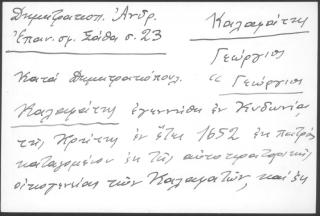 Δημητρακοπ. Ἀνδρ.
Ἐπαν. σμ. Σάθα σ. 23
Καλαμάτης
Γεώργιος
Κατά Δημητρακόπουλ.
“ Γεώργιος
Καλαμάτης ἐγεννήθη ἐν Κυδωνίᾳ
τῆς Κρήτης ἐν ἔτει 1652 ἐκ πατρὸς
καταγομένου ἐκ τῆς αὐτοκρατορικῆς
οἰκογενείας τῶν Καλαματῶν, καί ἐκ